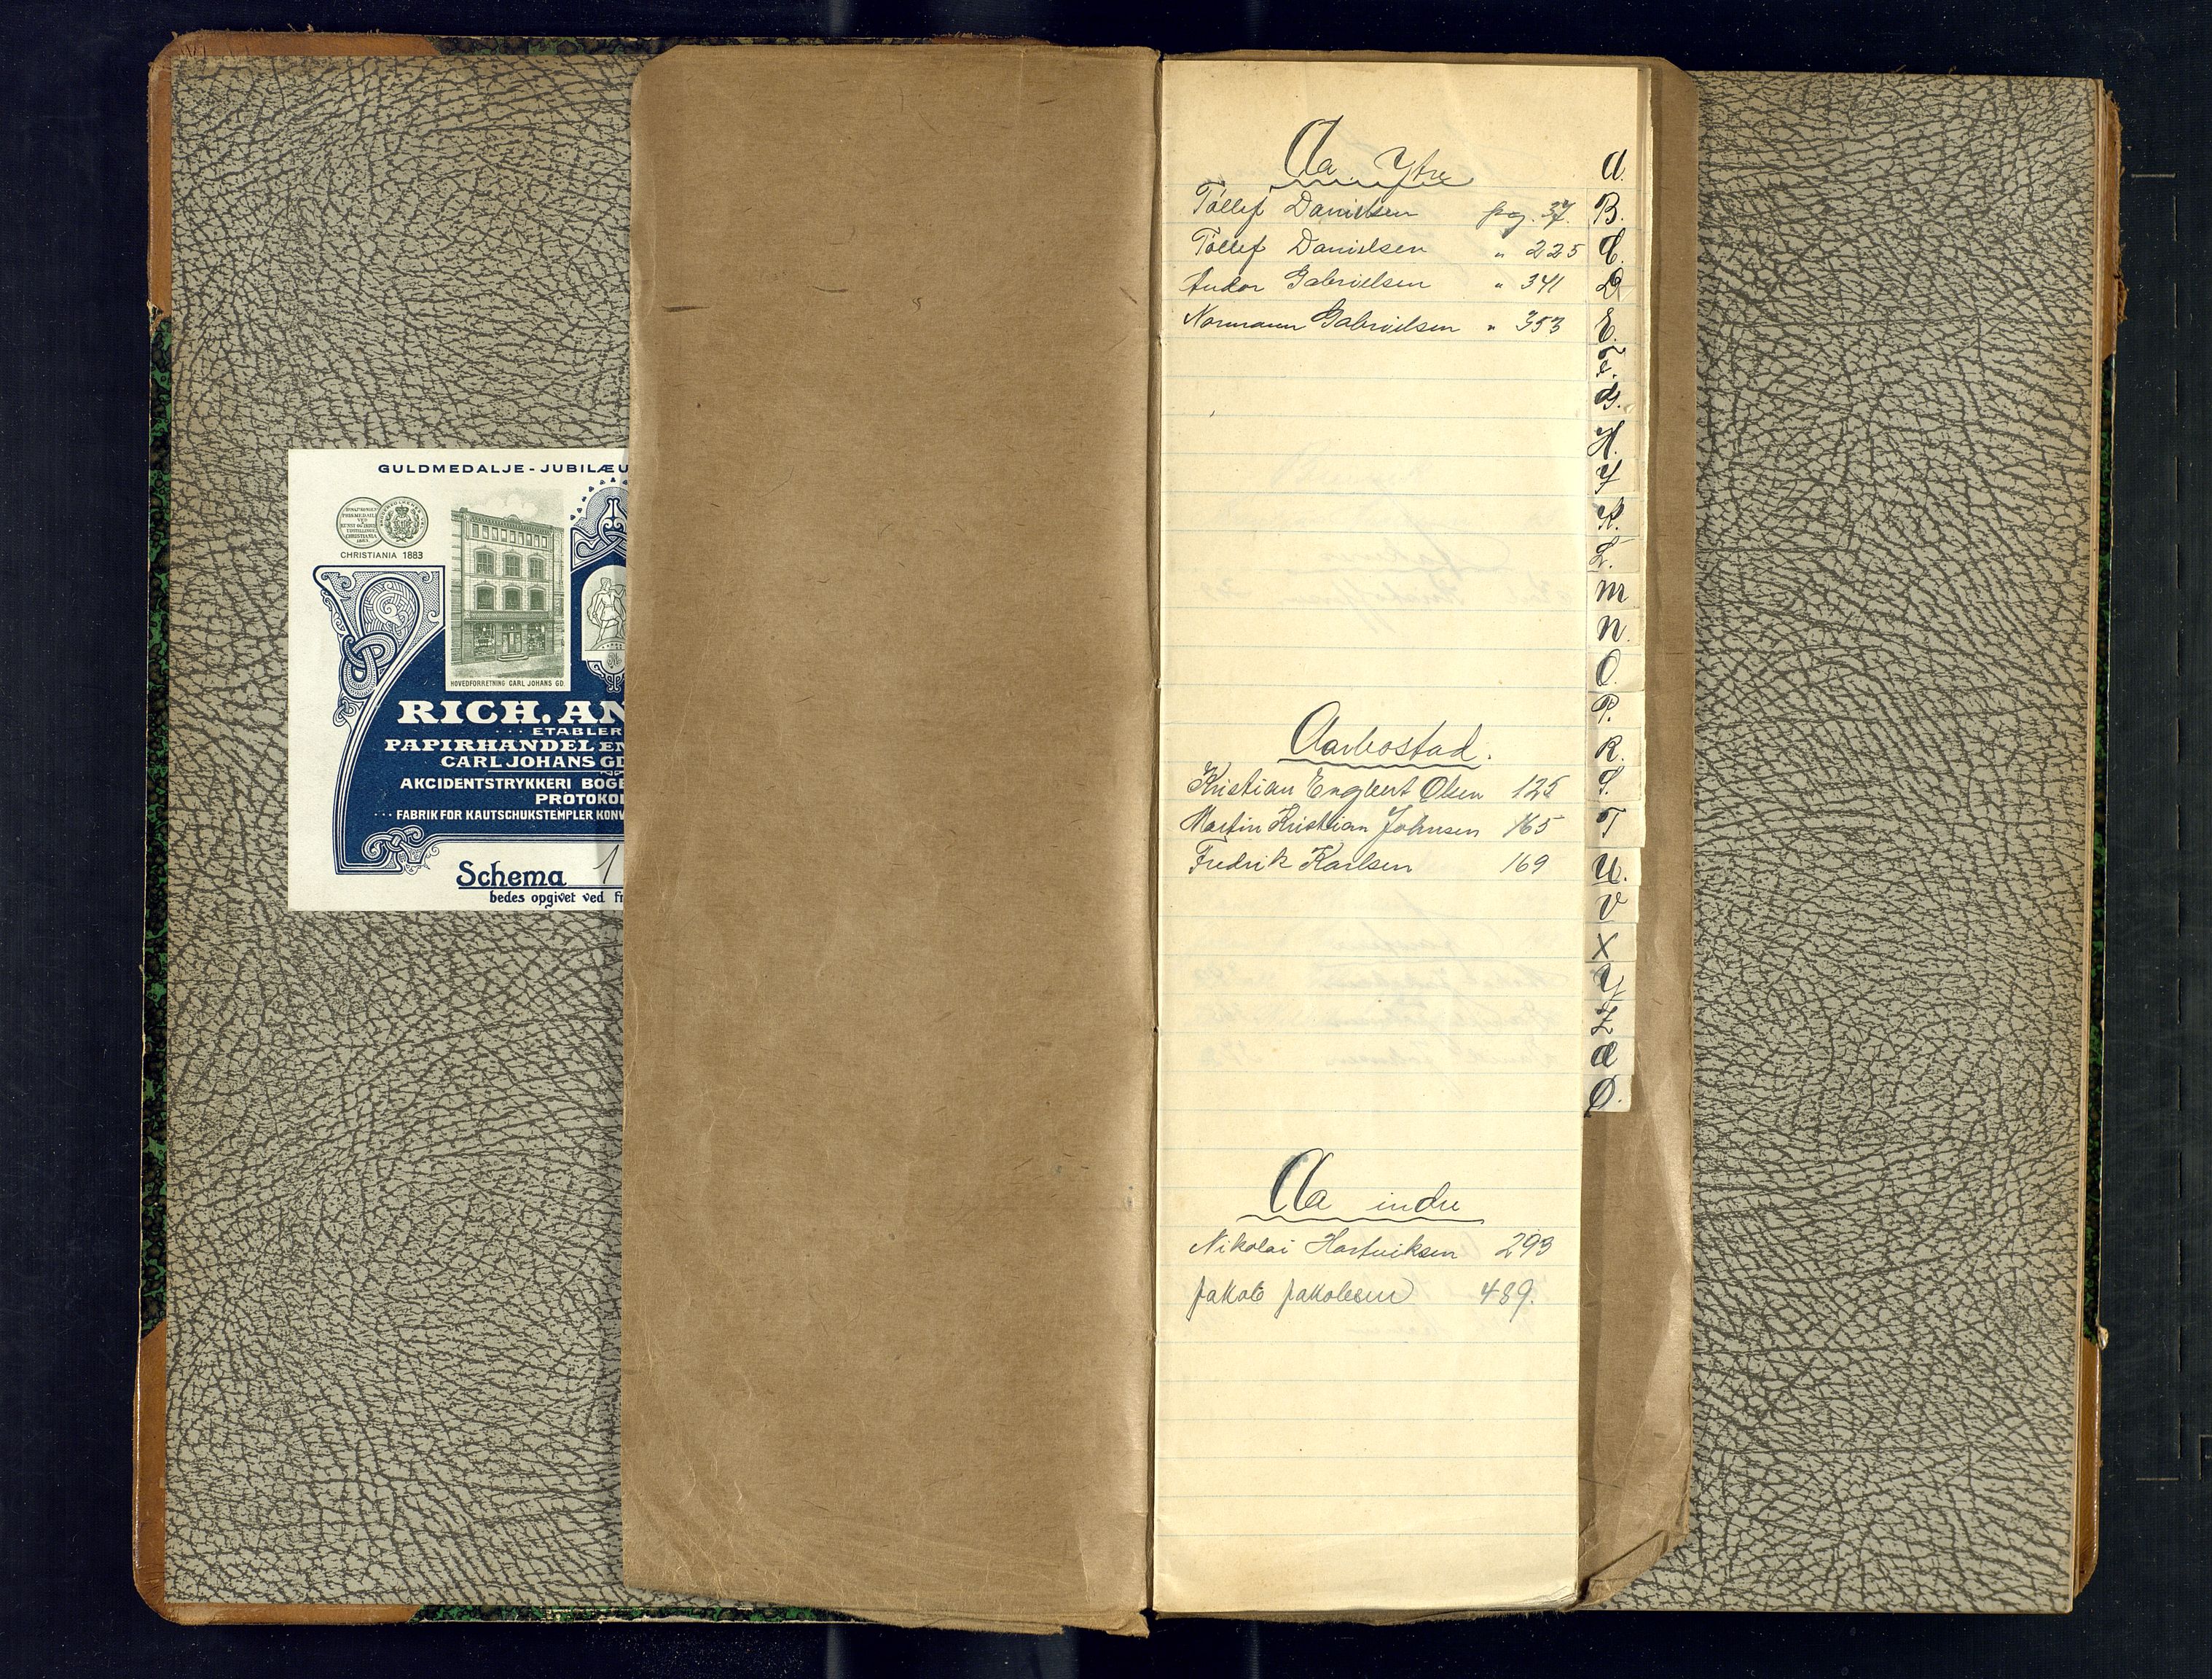 GULDMEDALJE-JUBILÆU
CHRISTIANIA 1883
HOVEDFORRETNING CARL JOHANS GD.
RICH. AN
ETABLER
PAPIRHANDEL EN
CARL JOHANS GD
AKCIDENTSTRYKKERI BOGB
PROTOKOL
FABRIK FOR KAUTSCHUKSTEMPLER KONV
Schema 1
bedes opgivet ved fr
Aa Ytre
Tøllef Danielsen pag. 37.
Tøllef Danielsen " 225
Andor Gabrielsen " 341
Normann Gabrielsen " 353
Aarbostad.
Kristian Engbert Olsen 125
Martin Kristian Johnsen 165
Fredrik Karlsen 169
Aa indre
Nikolai Hartviksen 293
Jakob Jakobsen 489.
A.
B.
C.
D
E.
F.
G.
H.
I
K.
L.
M
N.
O.
P.
R.
S.
T
U.
V
X
Y
Z
Æ
Ø.